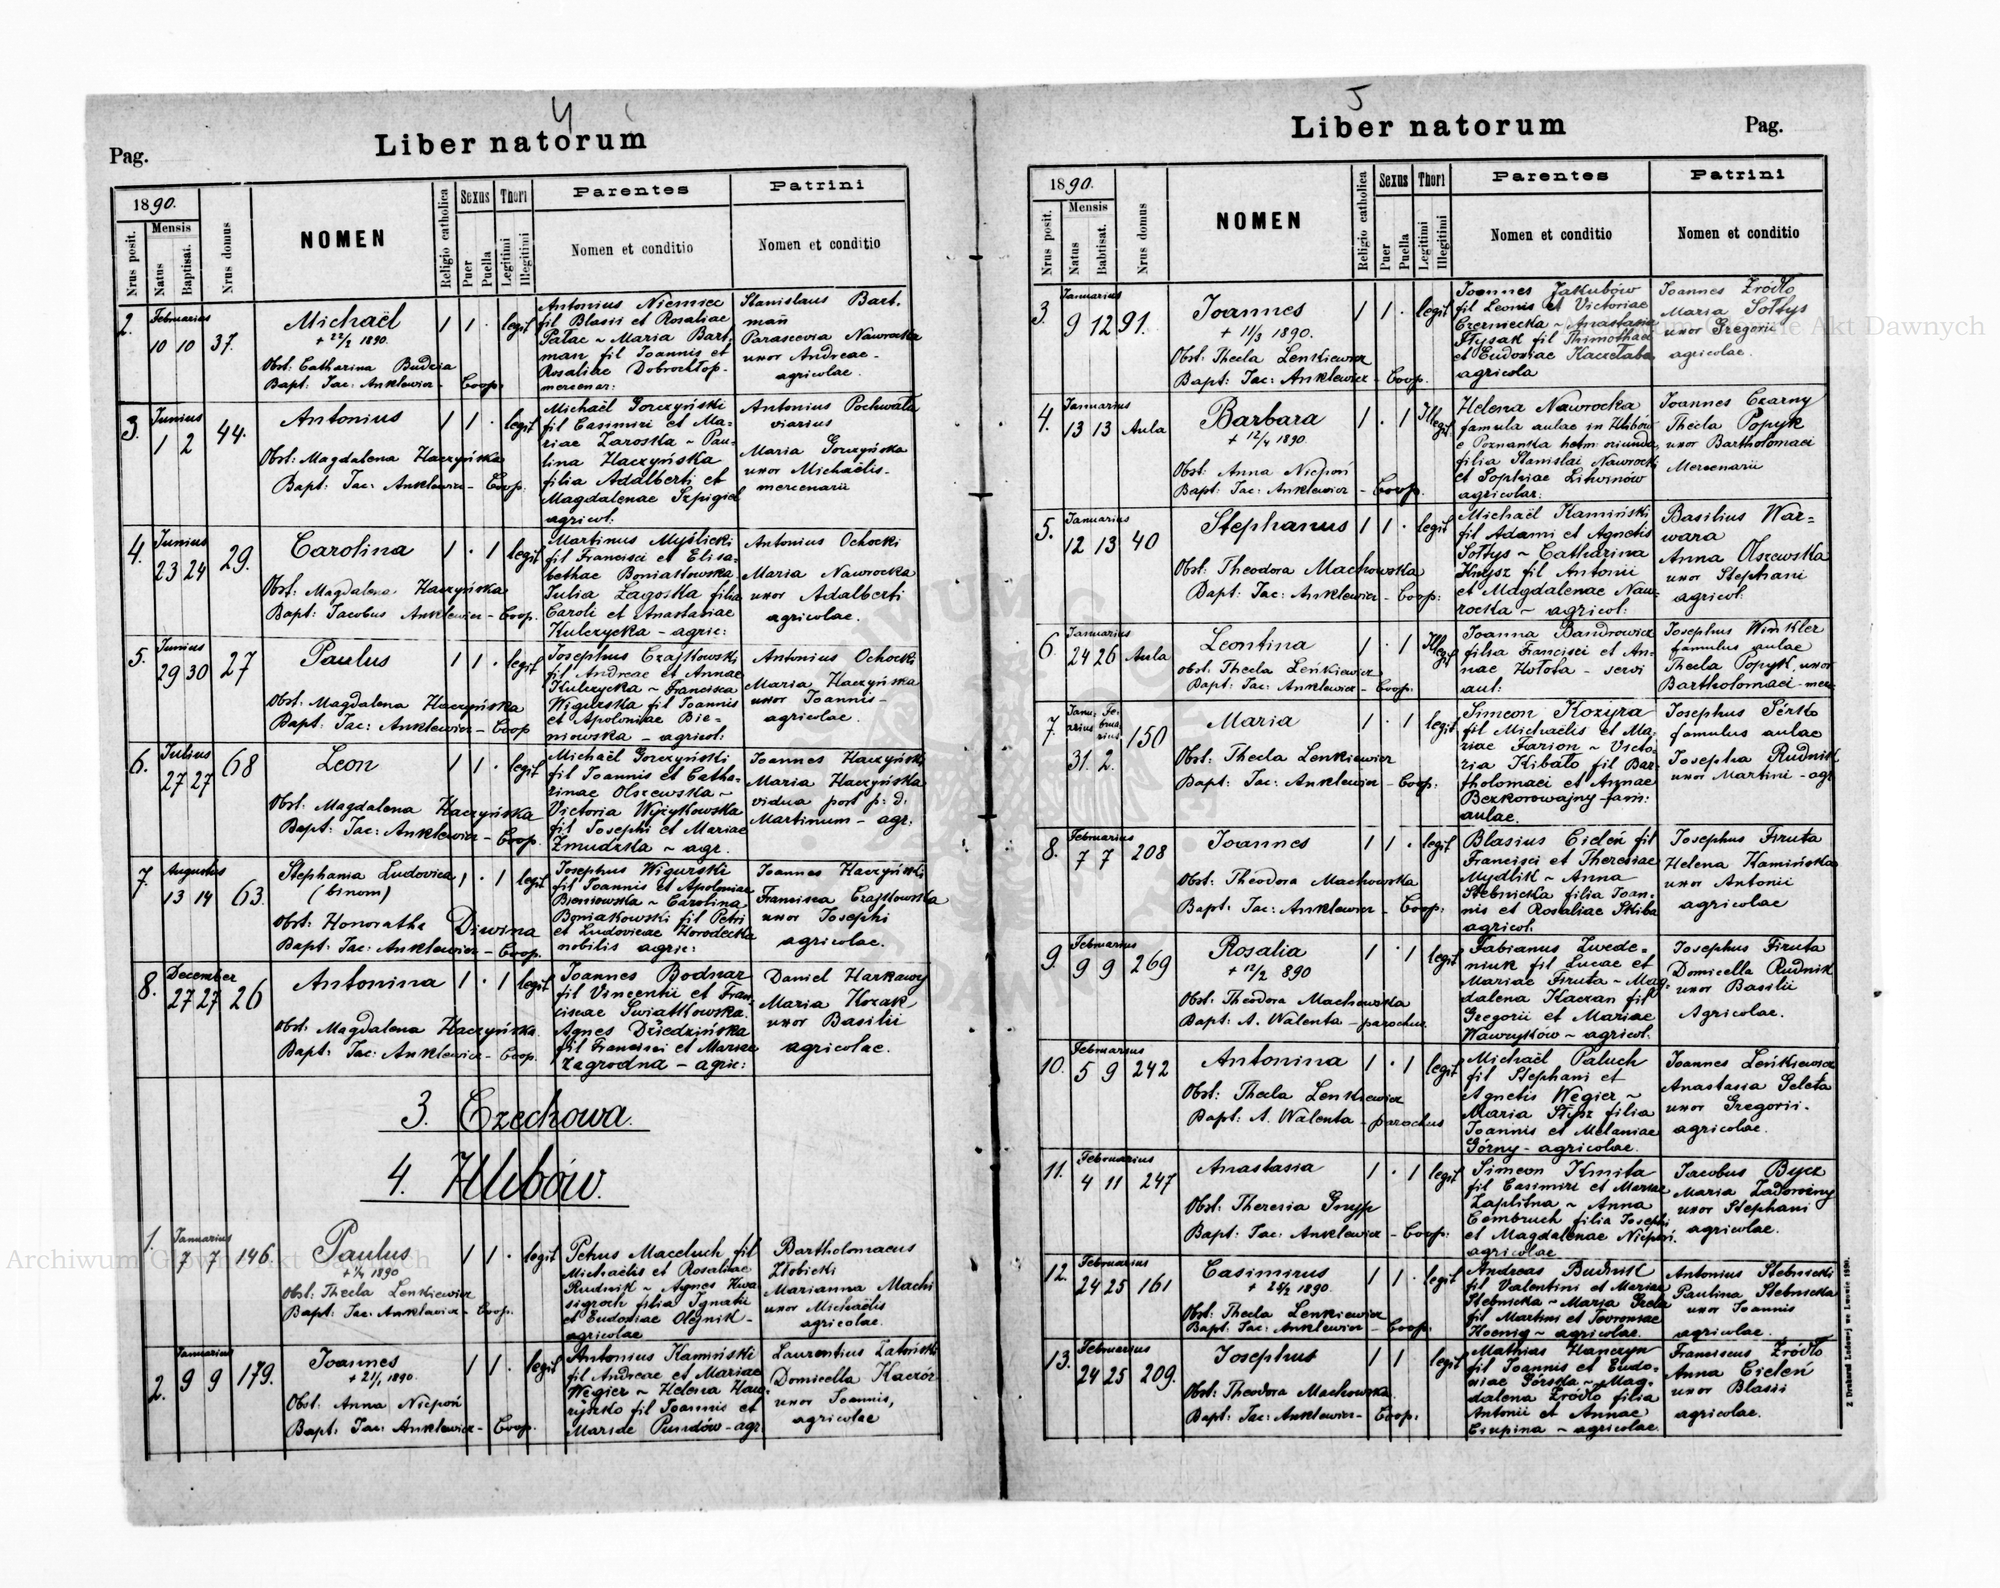 4
Liber natorum
Pag.
1890.
Mensis
Nrus posit.
Natus
Baptisat.
Nrus domus
NOMEN
Religio catholica
Sexus
Puer
Puella
Thori
Legitimi
Illegitimi
Parentes
Nomen et conditio
Patrini
Nomen et conditio
2. Februarius 10 10 37.
Michaël
+ 22/2 1890.
Obst: Catharina Budzia
Bapt: Jac: Anklewicz - Coop:
1 1 . legit
Antonius Niemiec
fil Blasii et Rosaliae
Pałac ~ Maria Bart-
man fil Joannis et
Rosaliae Dobrochłop-
mercenar:
Stanislaus Bart-
mañ
Parascevia Nawrocka
uxor Andreae -
agricolae.
3. Junius 1 2 44.
Antonius
Obst: Magdalena Haczyńska
Bapt: Jac: Anklewicz - Coop:
1 1 . legit
Michaël Gorczyński
fil Casimiri et Ma-
riae Zarosska ~ Pau-
lina Haczyńska
filia Adalberti et
Magdalenae Szpigiel
agricol:
Antonius Pochwała
viarius
Maria Gorczyńska
uxor Michaelis-
mercenarii
4. Junius 23 24 29.
Carolina
Obst: Magdalena Haczyńska
Bapt: Jacobus Anklewicz - Coop.
1 . 1 legit
Martinus Myślicki
fil Francisci et Elisa-
bethae Boniakowska
Julia Zagoska filia
Caroli et Anastasiae
Kulczycka - agric:
Antonius Ochocki
Maria Nawrocka
uxor Adalberti
agricolae.
5. Junius 29 30 27
Paulus
Obst: Magdalena Haczyńska
Bapt: Jac: Anklewicz - Coop
1 1 . legit
Josephus Czajkowski
fil Andreae et Annae
Kulczycka ~ Francisca
Wigurska fil Joannis
et Apoloniae Bie-
niowska - agricol:
Antonius Ochocki
Maria Haczyńska
uxor Joannis-
agricolae.
6. Julius 27 27 68
Leon
Obst: Magdalena Haczyńska
Bapt: Jac: Anklewicz - Coop.
1 1 . legit
Michaël Gorczyński
fil Joannis et Catha-
rinae Olszewska ~
Victoria Wyżykowska
fil Josephi et Mariae
Żmudzka ~ agr.
Joannes Haczyński
Maria Haczyńska
vidua post p: d:
Martinum - agr:
7. Augustus 13 14 63.
Stephania Ludovica
(binom)
Obst: Honoratha Diwina
Bapt: Jac: Anklewicz - Coop.
1 . 1 legit
Josephus Wigurski
fil Joannis et Apoloniae
Bieniowska ~ Carolina
Boniakowski fil Petri
et Ludovicae Horodecka
nobilis agric:
Joannes Haczyński
Francisca Czajkowska
uxor Josephi
agricolae.
8. December 27 27 26
Antonina
Obst: Magdalena Haczyńska.
Bapt: Jac: Anklewicz - Coop.
1 . 1 legit
Joannes Bodnar
fil Vincentii et Fran-
ciscae Swiatkowska.
Agnes Dziedzińska
fil Francisci et Mariae
Zagrodna - agric:
Daniel Harkawy
Maria Kozak
uxor Basilii
agricolae.
3. Czechowa.
4. Hlibów.
1. Januarius 7 7 146.
Paulus
1890
Obst: Thecla Lenkiewicz
Bapt: Jac: Anklewicz - Coop.
1 1 . legit
Petrus Maceluch fil
Michaëlis et Rosaliae
Rudnik ~ Agnes Kwa-
sigroch filia Ignatii
et Eudoxiae Olejnik -
agricolae
Bartholomaeus
Złobicki
Marianna Machi
uxor Michaëlis
agricolae.
2. Januarius 9 9 179.
Joannes
+ 21/1 1890.
Obst: Anna Niepoń
Bapt: Jac: Anklewicz - Coop.
1 1 . legit
Antonius Kamiński
fil Andreae et Mariae
Węgier ~ Helena Haw-
ryszko fil Joannis et
Mariae Pundów - agr
Laurentius Zatoński
Domicella Kaczór
uxor Joannis,
agricolae
5
Liber natorum
Pag.
1890.
Mensis
Nrus posit.
Natus
Babtisat.
Nrus domus
NOMEN
Religio catholica
Sexus
Puer
Puella
Thori
Legitimi
Illegitimi
Parentes
Nomen et conditio
Patrini
Nomen et conditio
3. Januarius 9 12 91.
Joannes
+ 11/3 1890.
Obst: Thecla Lenkiewicz
Bapt: Jac: Anklewicz - Coop.
1 1 . legit
Joannes Jakubów
fil Leonis et Victoriae
Czerniecka ~ Anastasia
Hłysak fil Thimothaei
et Eudoxiae Kaczełaba
agricola
Joannes Źródło
Maria Sołtys
uxor Gregorii
agricolae.
4. Januarius 13 13 Aula
Barbara
+ 12/4 1890.
Obst: Anna Niepoń
Bapt: Jac: Anklewicz - Coop.
1 . 1 Illegit.
Helena Nawrocka
famula aulae in Hlibów
e Poznanka hetm: oriunda,
filia Stanislai Nawrocki
et Sophiae Litwinów
agricolar:
Joannes Czarny
Thecla Popyk
uxor Bartholomaei
Mercenarii
5. Januarius 12 13 40
Stephanus
Obst: Theodora Machowska
Bapt: Jac: Anklewicz - Coop:
1 1 . legit
Michaël Kamiński
fil Adami et Agnetis
Sołtys ~ Catharina
Knysz fil Antonii
et Magdalenae Naw-
rocka ~ agricol:
Basilius War=
wara
Anna Olszewska
uxor Stephani
agricol:
6. Januarius 24 26 Aula
Leontina
Obst: Thecla Leńkiewicz
Bapt: Jac: Anklewicz - Coop:
1 . 1 Illegit
Joanna Bandrowicz
filia Francisci et An-
nae Hołota - servi
aul:
Josephus Winkler
famulus aulae
Thecla Popyk uxor
Bartholomaei - merc
7. Januarius Februarius 31. 2. 150
Maria
Obst: Thecla Lenkiewicz
Bapt: Jac: Anklewicz - Coop:
1 . 1 legit
Simeon Kozyra
fil Michaëlis et Ma-
riae Farion ~ Victo-
ria Kibało fil Bar-
tholomaei et Annae
Bezkorowajny - fam:
aulae.
Josephus Sérko
famulus aulae
Josepha Rudnik
uxor Martini - agr
8. Februarius 7 7 208
Joannes
Obst: Theodora Machowska
Bapt: Jac: Anklewicz - Coop:
1 1 . legit
Blasius Cieleń fil
Francisci et Theresiae
Mydlik ~ Anna
Stebnicka filia Joan-
nis et Rosaliae Skiba
agricol.
Josephus Firuta
Helena Kamińska
uxor Antonii
agricolae
9. Februarius 9 9 269
Rosalia
+ 12/2 890
Obst: Theodora Machowska
Bapt: A. Walenta - parochus.
1 . 1 legit
Fabianus Zwede-
niuk fil Lucae et
Mariae Firuta ~ Mag-
dalena Kaczan fil
Gregorii et Mariae
Wawryków ~ agricol.
Josephus Firuta
Domicella Rudnik
uxor Basilii
Agricolae.
10. Februarius 5 9 242
Antonina
Obst: Thecla Lenkiewicz
Bapt: A. Walenta - parochus
1 . 1 legit
Michaël Paluch
fil Stephani et
Agnetis Węgier ~
Maria Stysz filia
Joannis et Melaniae
Górny - agricolae.
Joannes Leńkiewicz
Anastasia Seleta
uxor Gregorii.
agricolae.
11. Februarius 4 11 247
Anastasia
Obst: Theresia Gnyp
Bapt: Jac: Anklewicz - Coop:
1 . 1 legit
Simeon Kmita
fil Casimiri et Mariae
Zaplitna ~ Anna
Cembruch filia Josephi
et Magdalenae Niepoń.
agricolae
Jacobus Bycz
Maria Zadorożny
uxor Stephani
agricolae.
12. Februarius 24 25 161
Casimirus
+ 25/2 1890.
Obst: Thecla Lenkiewicz
Bapt: Jac: Anklewicz - Coop:
1 1 . legit
Andreas Budnik
fil Valentini et Mariae
Stebnicka ~ Maria Grela
fil Martini et Tovroniae
Hoenig ~ agricolae.
Antonius Stebnicki
Paulina Stebnicka
uxor Joannis
agricolae.
13. Februarius 24 25 209.
Josephus
Obst: Theodora Machowska.
Bapt: Jac: Anklewicz - Coop:
1 1 legit
Mathias Hanczyn
fil Joannis et Eudo-
xiae Górska ~ Mag-
dalena Źródło filia
Antonii et Annae
Ciupina ~ agricolae.
Franciscus Źródło
Anna Cieleń
uxor Blasii
agricolae.
Z Drukarni Ludowej we Lwowie 1890.
Archiwum Główne Akt Dawnych
Archiwum Główne Akt Dawnych